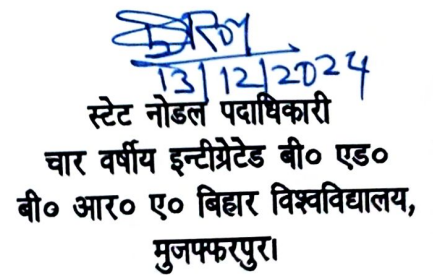 13/12/2024
स्टेट नोडल पदाधिकारी
चार वर्षीय इन्टीग्रेटेड बी० एड०
बी० आर० ए० बिहार विश्वविद्यालय,
मुजफ्फरपुर।